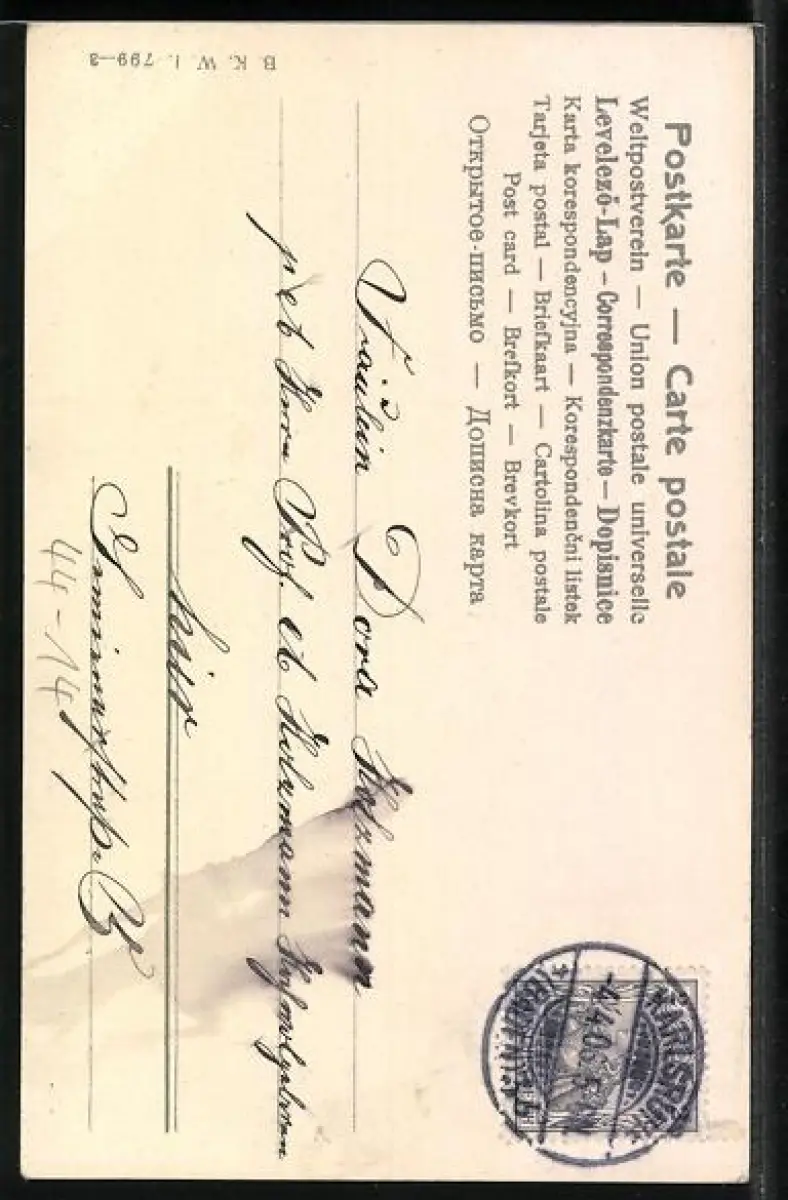 Postkarte — Carte postale
Weltpostverein — Union postale universelle
Levelező-Lap — Correspondenzkarte — Dopisnice
Karta korespondencyjna — Korespondenční listek
Tarjeta postal — Briefkaart — Cartolina postale
Post card — Brefkort — Brevkort
Открытое-письмо — Дописна карта
KARLSRUHE
(BADEN)
Fräulein Dora Holzmann
Prof.
Holzmann
hier
44-14
B. K. W. I. 799—3